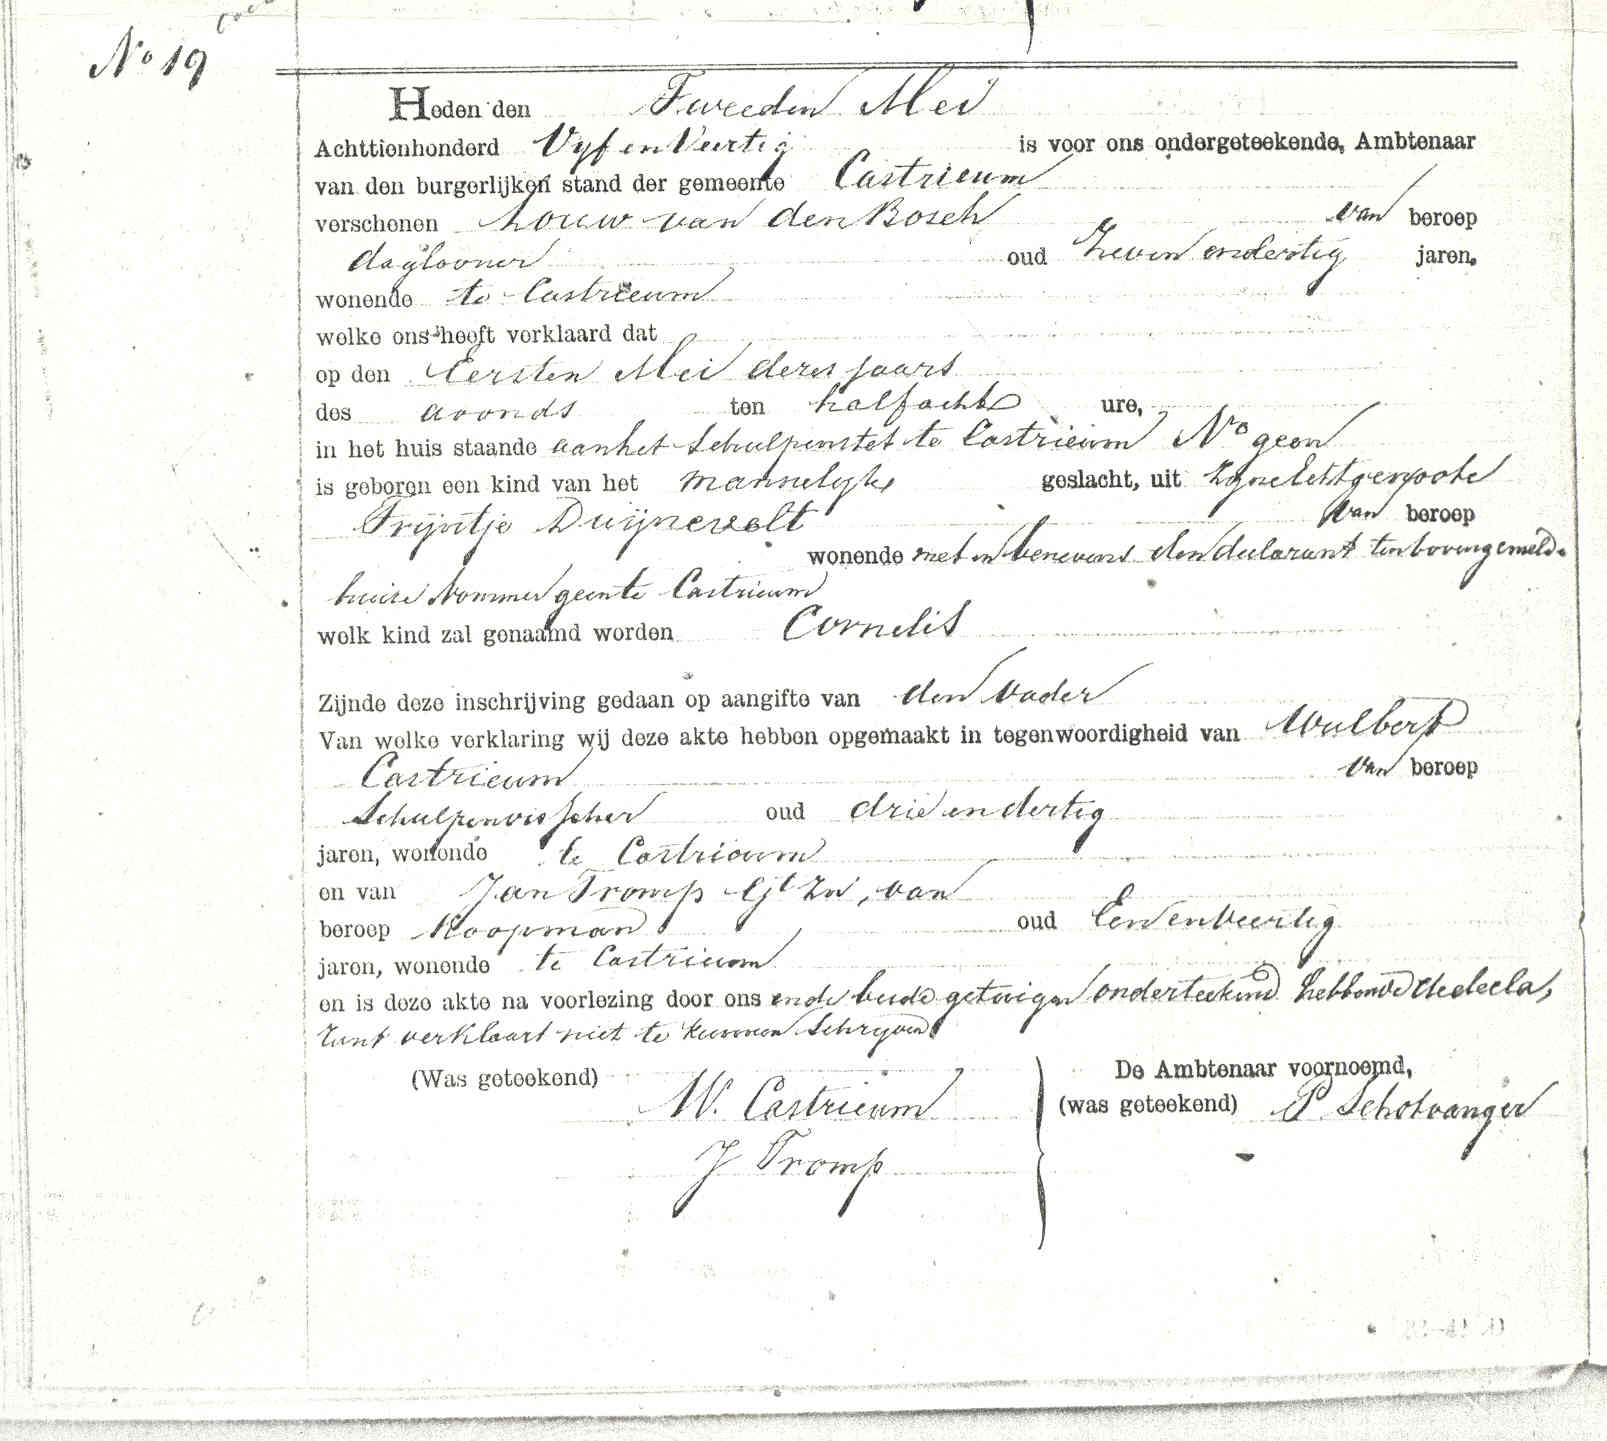 No 19
Heden den Tweeden Mei
Achttienhonderd Vyf en Veertig is voor ons ondergeteekende, Ambtenaar
van den burgerlijken stand der gemeente Castricum
verschenen Louw van den Bosch van beroep
daglooner oud Zeven en dertig jaren,
wonende te Castricum
welke ons heeft verklaard dat
op den Eersten Mei dezes jaars
des avonds ten half acht ure,
in het huis staande aan het Schulpenstet te Castricum No geen
is geboren een kind van het mannelyke geslacht, uit zyne Echtgenoote
Trijntje Duijnevelt van beroep
wonende met en benevens den declarant ten bovengemelde
huize Nommer geen te Castricum
welk kind zal genaamd worden Cornelis
Zijnde deze inschrijving gedaan op aangifte van den Vader
Van welke verklaring wij deze akte hebben opgemaakt in tegenwoordigheid van Wulbert
Castricum van beroep
Schulpenvisscher oud drie en dertig
jaren, wonende te Castricum
en van Jan Tromp Gt Zn, van
beroep Koopman oud Een en Veertig
jaren, wonende te Castricum
en is deze akte na voorlezing door ons en de beide getuigen onderteekend hebbende de decla,
rant verklaart niet te kunnen Schryven
(Was geteekend) De Ambtenaar voornoemd,
W. Castricum (was geteekend) P Schotvanger
J Tromp